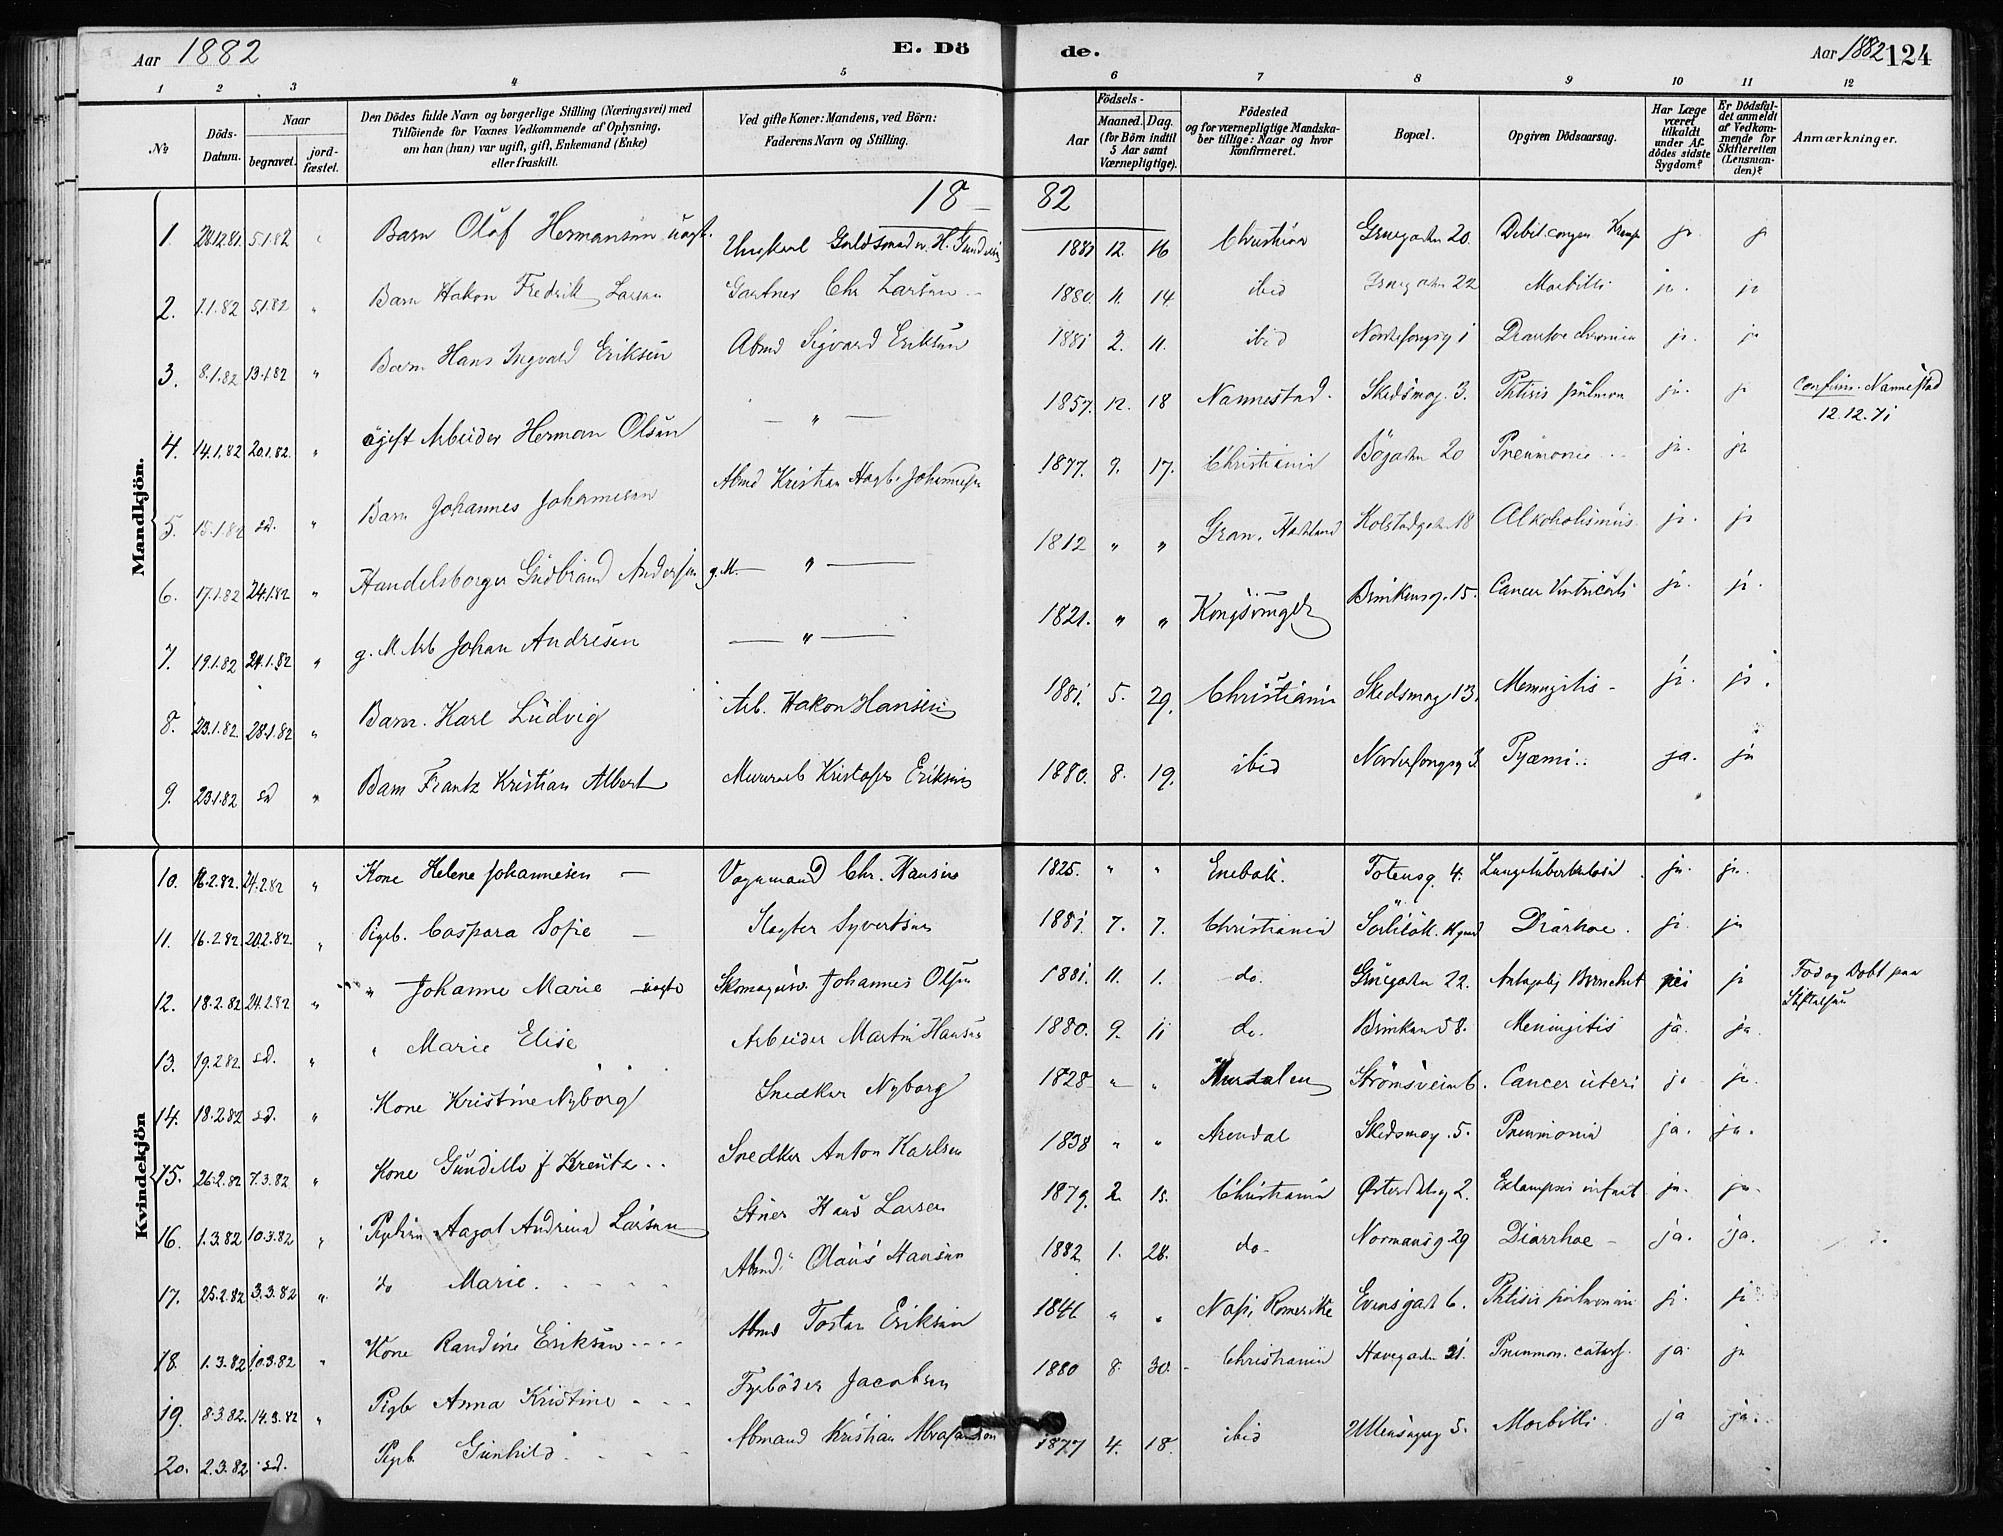 Aar 1882
E. Dö
de.
Aar 1882 124
1 2 3 4 5 6 7 8 9 10 11 12
№
Döds-Datum.
Naar
begravet.
jord-fæstet.
Den Dödes fulde Navn og borgerlige Stilling (Næringsvei) med
Tilföiende for Voxnes Vedkommende af Oplysning,
om han (hun) var ugift, gift, Enkemand (Enke)
eller fraskilt.
Ved gifte Koner: Mandens, ved Börn:
Faderens Navn og Stilling.
Födsels-
Aar
Maaned. Dag.
(for Börn indtil
5 Aar samt
Værnepligtige).
Födested
og for værnepligtige Mandska-
ber tillige: Naar og hvor
konfirmeret.
Bopæl.
Opgiven Dödsaarsag.
Har Læge
været
tilkaldt
under Af-
dödes sidste
Sygdom?
Er Dödsfal-
det anmeldt
af Vedkom-
mende for
Skifteretten
(Lensman-
den)?
Anmærkninger.
18 — 82
Mandkjön.
1. 28.12.81. 5.1.82 Barn Olaf Hermansen uægt. Ungkarl Guldsmed H. 1881 12. 16 Christiania Gruegaden 20. ja ja
2. 1.1.82 5.1.82 " Barn Hakon Fredrik Larsen Gartner Chr Larsen 1880. 11. 14 ibid Gruegaden 22 Morbilli ja. ja
3. 8.1.82 13.1.82 " Barn Hans Ingvald Eriksen Abmd Sigvard Eriksen 1881 2. 11. ibid ja. ja
4. 14.1.82 20.1.82. " ugift Arbeider Herman Olsen — " — 1857. 12. 18 Nannestad. Skedsmog. 3. Phtisis pulmon ja. ja Confirm. Nannestad
12.12.71
5. 15.1.82 sd. " Barn Johannes Johannesen Abmd Kristian Johannesen 1877. 9. 17. Christiania Bøgaden 20 Pneumonie ja. ja
6. 17.1.82 24.1.82 " Handelsborger Gudbrand Andersen g.M. — " — 1812 " " Gran, Hadeland Kolstadgaden 18 Alkoholismus. ja. ja
7. 19.1.82 24.1.82 " g. M. Arb Johan Andresen — " — 1821. " " Kongsvinger Brinkensg. 15. Cancer Ventriculi ja. ja.
8. 23.1.82. 28.1.82 " Barn. Karl Ludvig Arb. Hakon Hansen 1881. 5. 29. Christiania Skedsmog 13. Meningitis - ja. ja.
9. 23.1.82 sd " Barn Frantz Kristian Albert Murerarb Kristofer Eriksen 1880. 8. 19. ibid Nordrefongsg 3. Pyæmi.. ja. ja
Kvindekjön
10. 16.2.82. 24.2.82 " Kone Helene Johannesen — Vognmand Chr. Hansen 1825. " " Enebak. Totensg. 4. Lungetuberkulose ja. ja.
11. 16.2.82. 20.2.82. " Pigeb. Caspara Sofie — Slagter Syvertsen 1881. 7. 7. Christiania Diarhoe. ja. ja
12. 18.2.82 24.2.82 " " Johanne Marie uægte Skomagersv. Johannes Olsen 1881. 11. 1. do. Gruegaden 22. nei ja Fød og Døbt paa
Stiftelsen
13. 19.2.82. sd. " " Marie Elise Arbeider Martin Hansen 1880. 9. 11 do. Brinken 58. Meningitis ja. ja.
14. 18.2.82 sd. " Kone Kristine Nyborg Snedker Nyborg 1828 " " Strømsveien 6. Cancer uteri ja ja.
15. 26.2.82 7.3.82 " Kone Gunnille f Kreutz.. Snedker Anton Karlsen 1838 " " Arendal Skedsmog. 5. Pneumonia ja. ja.
16. 1.3.82 10.3.82 " Aagot Andrina Larsen Hans Larsen 1879. 2. 15. Christiania Østerdalsg 2. Eclampsi infant ja. ja.
17. 25.2.82 3.3.82 " do Marie. Abmd Olaus Hansen 1882 1. 28. do. Normansg 29 Diarrhoe — ja. ja.
18. 1.3.82 10.3.82 " Kone Randine Eriksen Abmd Tosten Eriksen 1846. " " Næs, Romerike Evensgade 6. Phtisis pulmonum ja. ja
19. 8.3.82. 14.3.82 " Pigeb Anna Kristine Fyrbøder Jacobsen 1880 8. 30. Christiania Havegaden 21. Pneumon. catarrh. ja. ja
20. 2.3.82 sd. Pigeb. Gunhild Abmand Kristian 1877 4. 18. ibid Ullensagerg 5. Morbilli. ja ja.